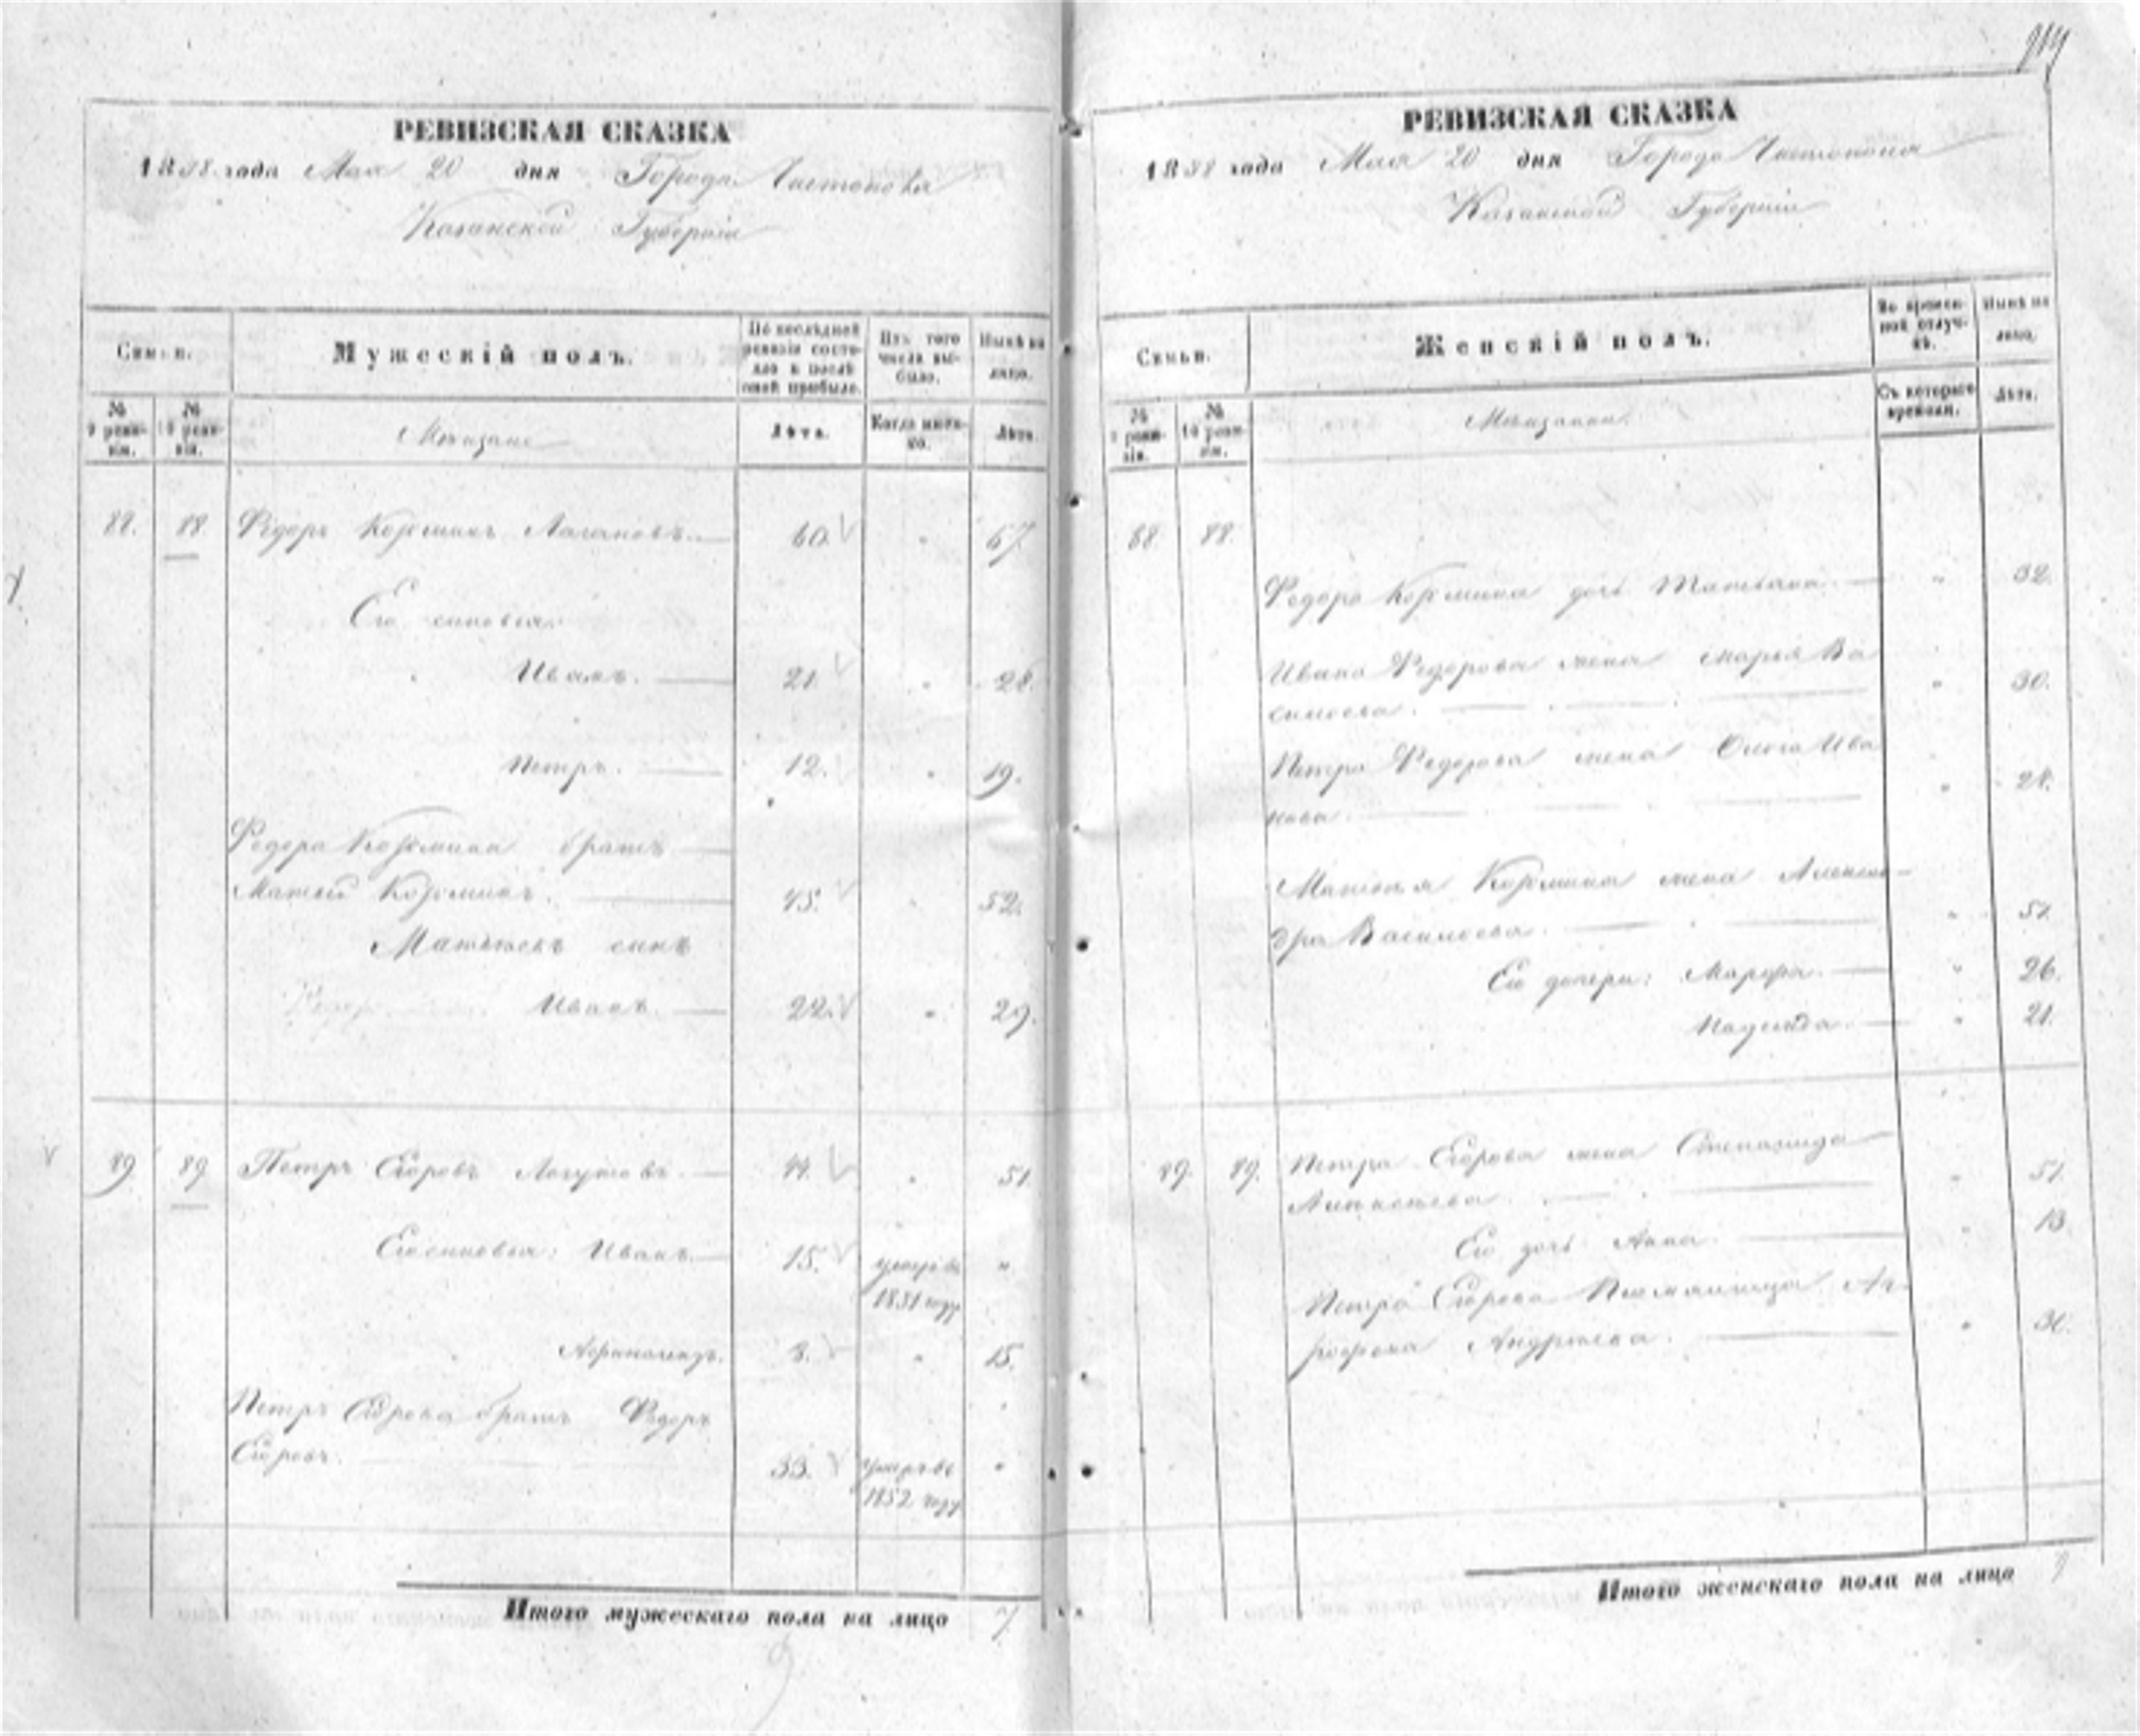 РЕВИЗСКАЯ СКАЗКА
1858 года Мая 20 дня Города Чистополя
Казанской Губерніи
Семьи.
Мужескій полъ.
По послѣдней ревизіи состояло и послѣ оной прибыло.
Изъ того числа выбыло.
Нынѣ на лицо.
№ 9 ревизіи.
№ 10 ревизіи.
Мѣщане
Лѣта.
Когда именно.
Лѣта.
88. 88 Ѳедоръ Козминъ 60. " 67.
Его сыновья:
Иванъ. 21. " 28.
Петръ. 12. " 19.
Ѳедора Козмина братъ
Матвѣй Козминъ. 45. " 52.
Матвѣевъ сынъ
Иванъ. 22. " 29.
89 89 Петръ Егоровъ 44. " 51.
Его сыновья: Иванъ. 15. умеръ въ "
1851 году
8. " 15.
Петра Егорова братъ Ѳедоръ
Егоровъ. 33. умеръ въ "
1852 году
Итого мужескаго пола на лицо 7
РЕВИЗСКАЯ СКАЗКА
1858 года Мая 20 дня Города Чистополя
Казанской Губерніи
Семьи.
Женскій полъ.
Во временной отлучкѣ.
Нынѣ на лицо.
№ 9 ревизіи.
№ 10 ревизіи.
Мѣщанки
Съ котораго времени.
Лѣта.
88. 88.
Ѳедора Козмина дочь Татьяна. " 32.
Ивана Ѳедорова жена Марья Ва
сильева. " 30.
Петра Ѳедорова жена Ольга Ива
нова. "
Матвѣя Козмина жена Алексан-
дра Васильева. " 51.
Его дочери: Марфа. " 26.
Надежда. " 21.
89. 89. Петра Егорова жена Степанида
Алексѣева. " 51.
Его дочь Анна. " 13.
Петра Егорова племянница Аг-
рофена Андрѣева. "
Итого женскаго пола на лицо 9